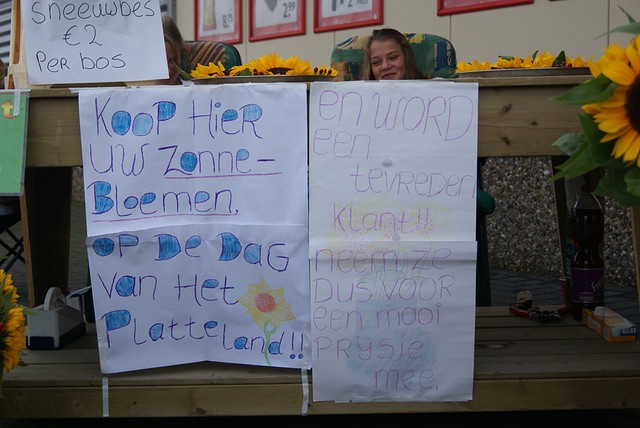 Sneeuwbes
€ 2
Per bos
Koop Hier
uw Zonne-
Bloemen.
op De Dag
van Het
Platteland!!
en WORD
een
tevreden
Klant!!
neem ze
Dus voor
een mooi
prysje
mee.
2.99